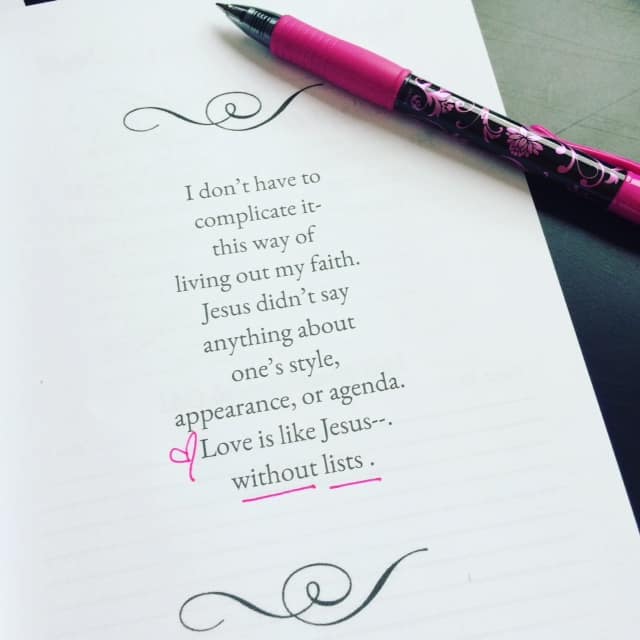 I don't have to
complicate it-
this way of
living out my faith.
Jesus didn't say
anything about
one's style,
appearance, or agenda.
Love is like Jesus--.
without lists .